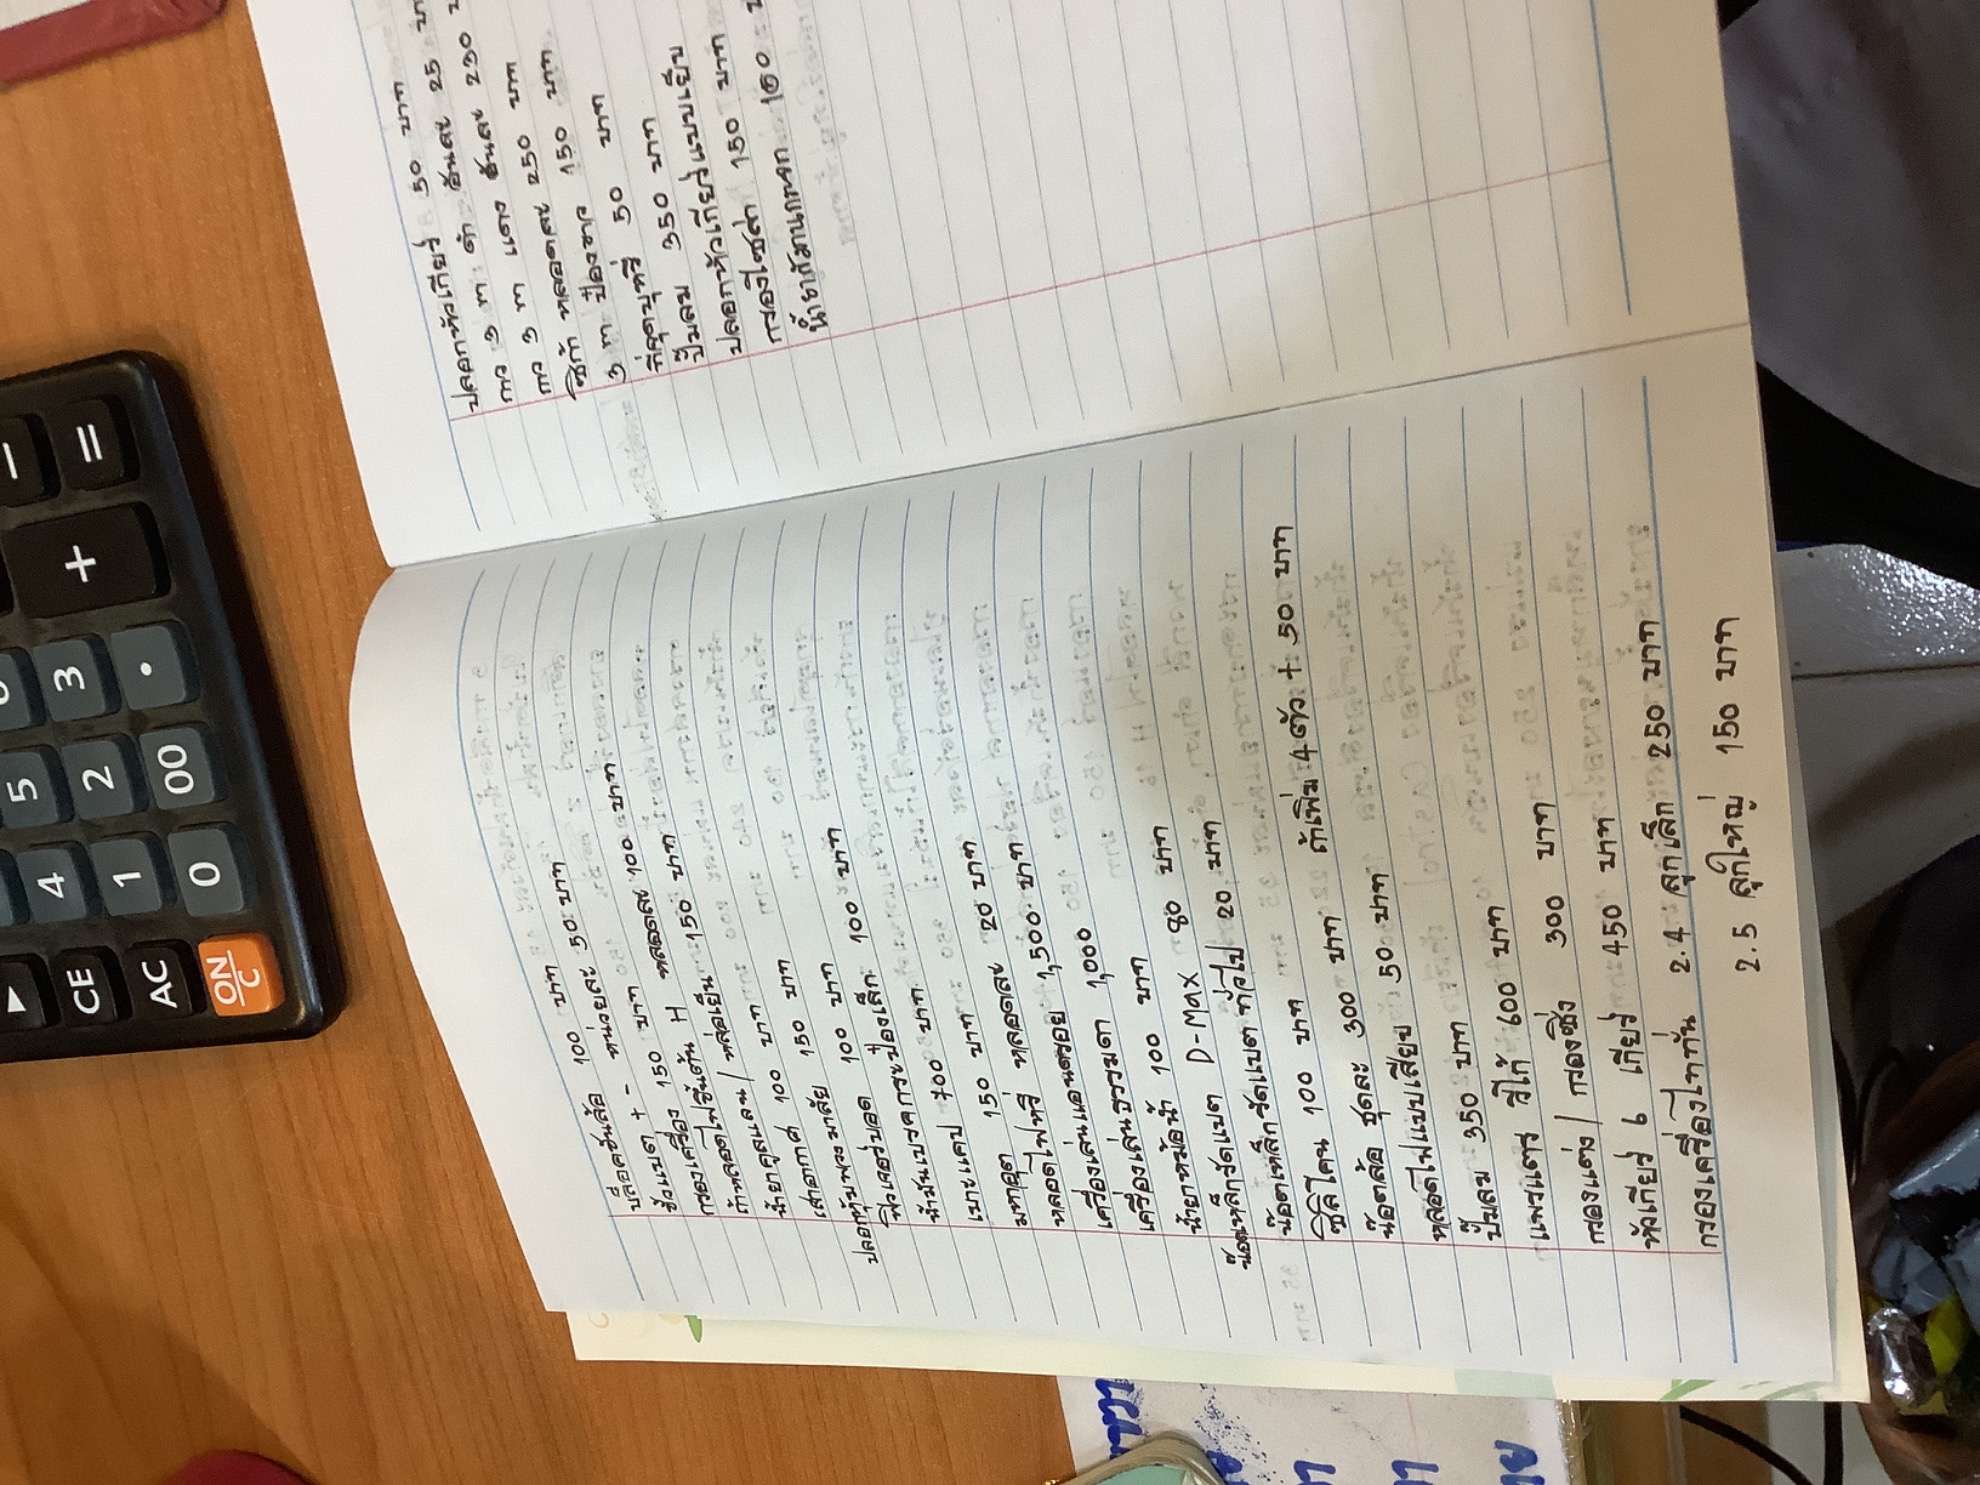 บล็อคขันล้อ 100 บาท
ขั้วแบต + - หน่วยละ 50 บาท
กรองเครื่อง 150 บาท หลอดละ 100 บาท
ถ้าหลอดไฟขึ้นต้น H 150 บาท
น้ำยาคูลแลน / หล่อเย็น
เสาอากาศ 100 บาท
ปลอกหุ้มพวงมาลัย 150 บาท
ฟิวเจอร์บอด 100 บาท 100 บาท
น้ำมันเบรคกระป๋องเล็ก
เบาะแคป 700 บาท
มหาอุด 150 บาท
หลอดไฟหรี่ หลอดละ 20 บาท
เครื่องเล่นแอนดรอย 1,500 บาท
เครื่องเล่นธรรมดา 1,000
น้ำยาหม้อน้ำ 100 บาท
น็อตเหล็กรัดแบต D-Max 80 บาท
น็อตเหล็กรัดแบต ทั่วไป 20 บาท
ซิลิโคน 100 บาท
น็อตล้อ ชุดละ 300 บาท ถ้าเพิ่ม 4 ตัว + 50 บาท
หลอดไฟแบบเสียบ 50 บาท
ปั๊มลม 350 บาท
แพรเตรว วีโก้ 600 บาท
กรองแต่ง / กรองซิ่ง 300 บาท
หัวเกียร์ 6 เกียร์ 450 บาท
กรองเครื่องไททัน 2.4 ลูกเล็ก 250 บาท
2.5 ลูกใหญ่ 150 บาท
ปลอกหัวเกียร์ 50 บาท
กาว 3 M ดำ อันละ 25 บา
กาว 3 M แดง อันละ 230
ซิก้า หลอดละ 250 บาท
3 M ป๋องขาว 150 บาท
ที่จุดบุหรี่ 50 บาท
ปั๊มลม 350 บาท
ปลอกหัวเกียร์แบบเย็บ
กรองโซล่า 150 บาท
น้ำยาถัมานกแตก 160
CE
AC
ON/C
0
00
.
1
2
3
4
5
+
-
=